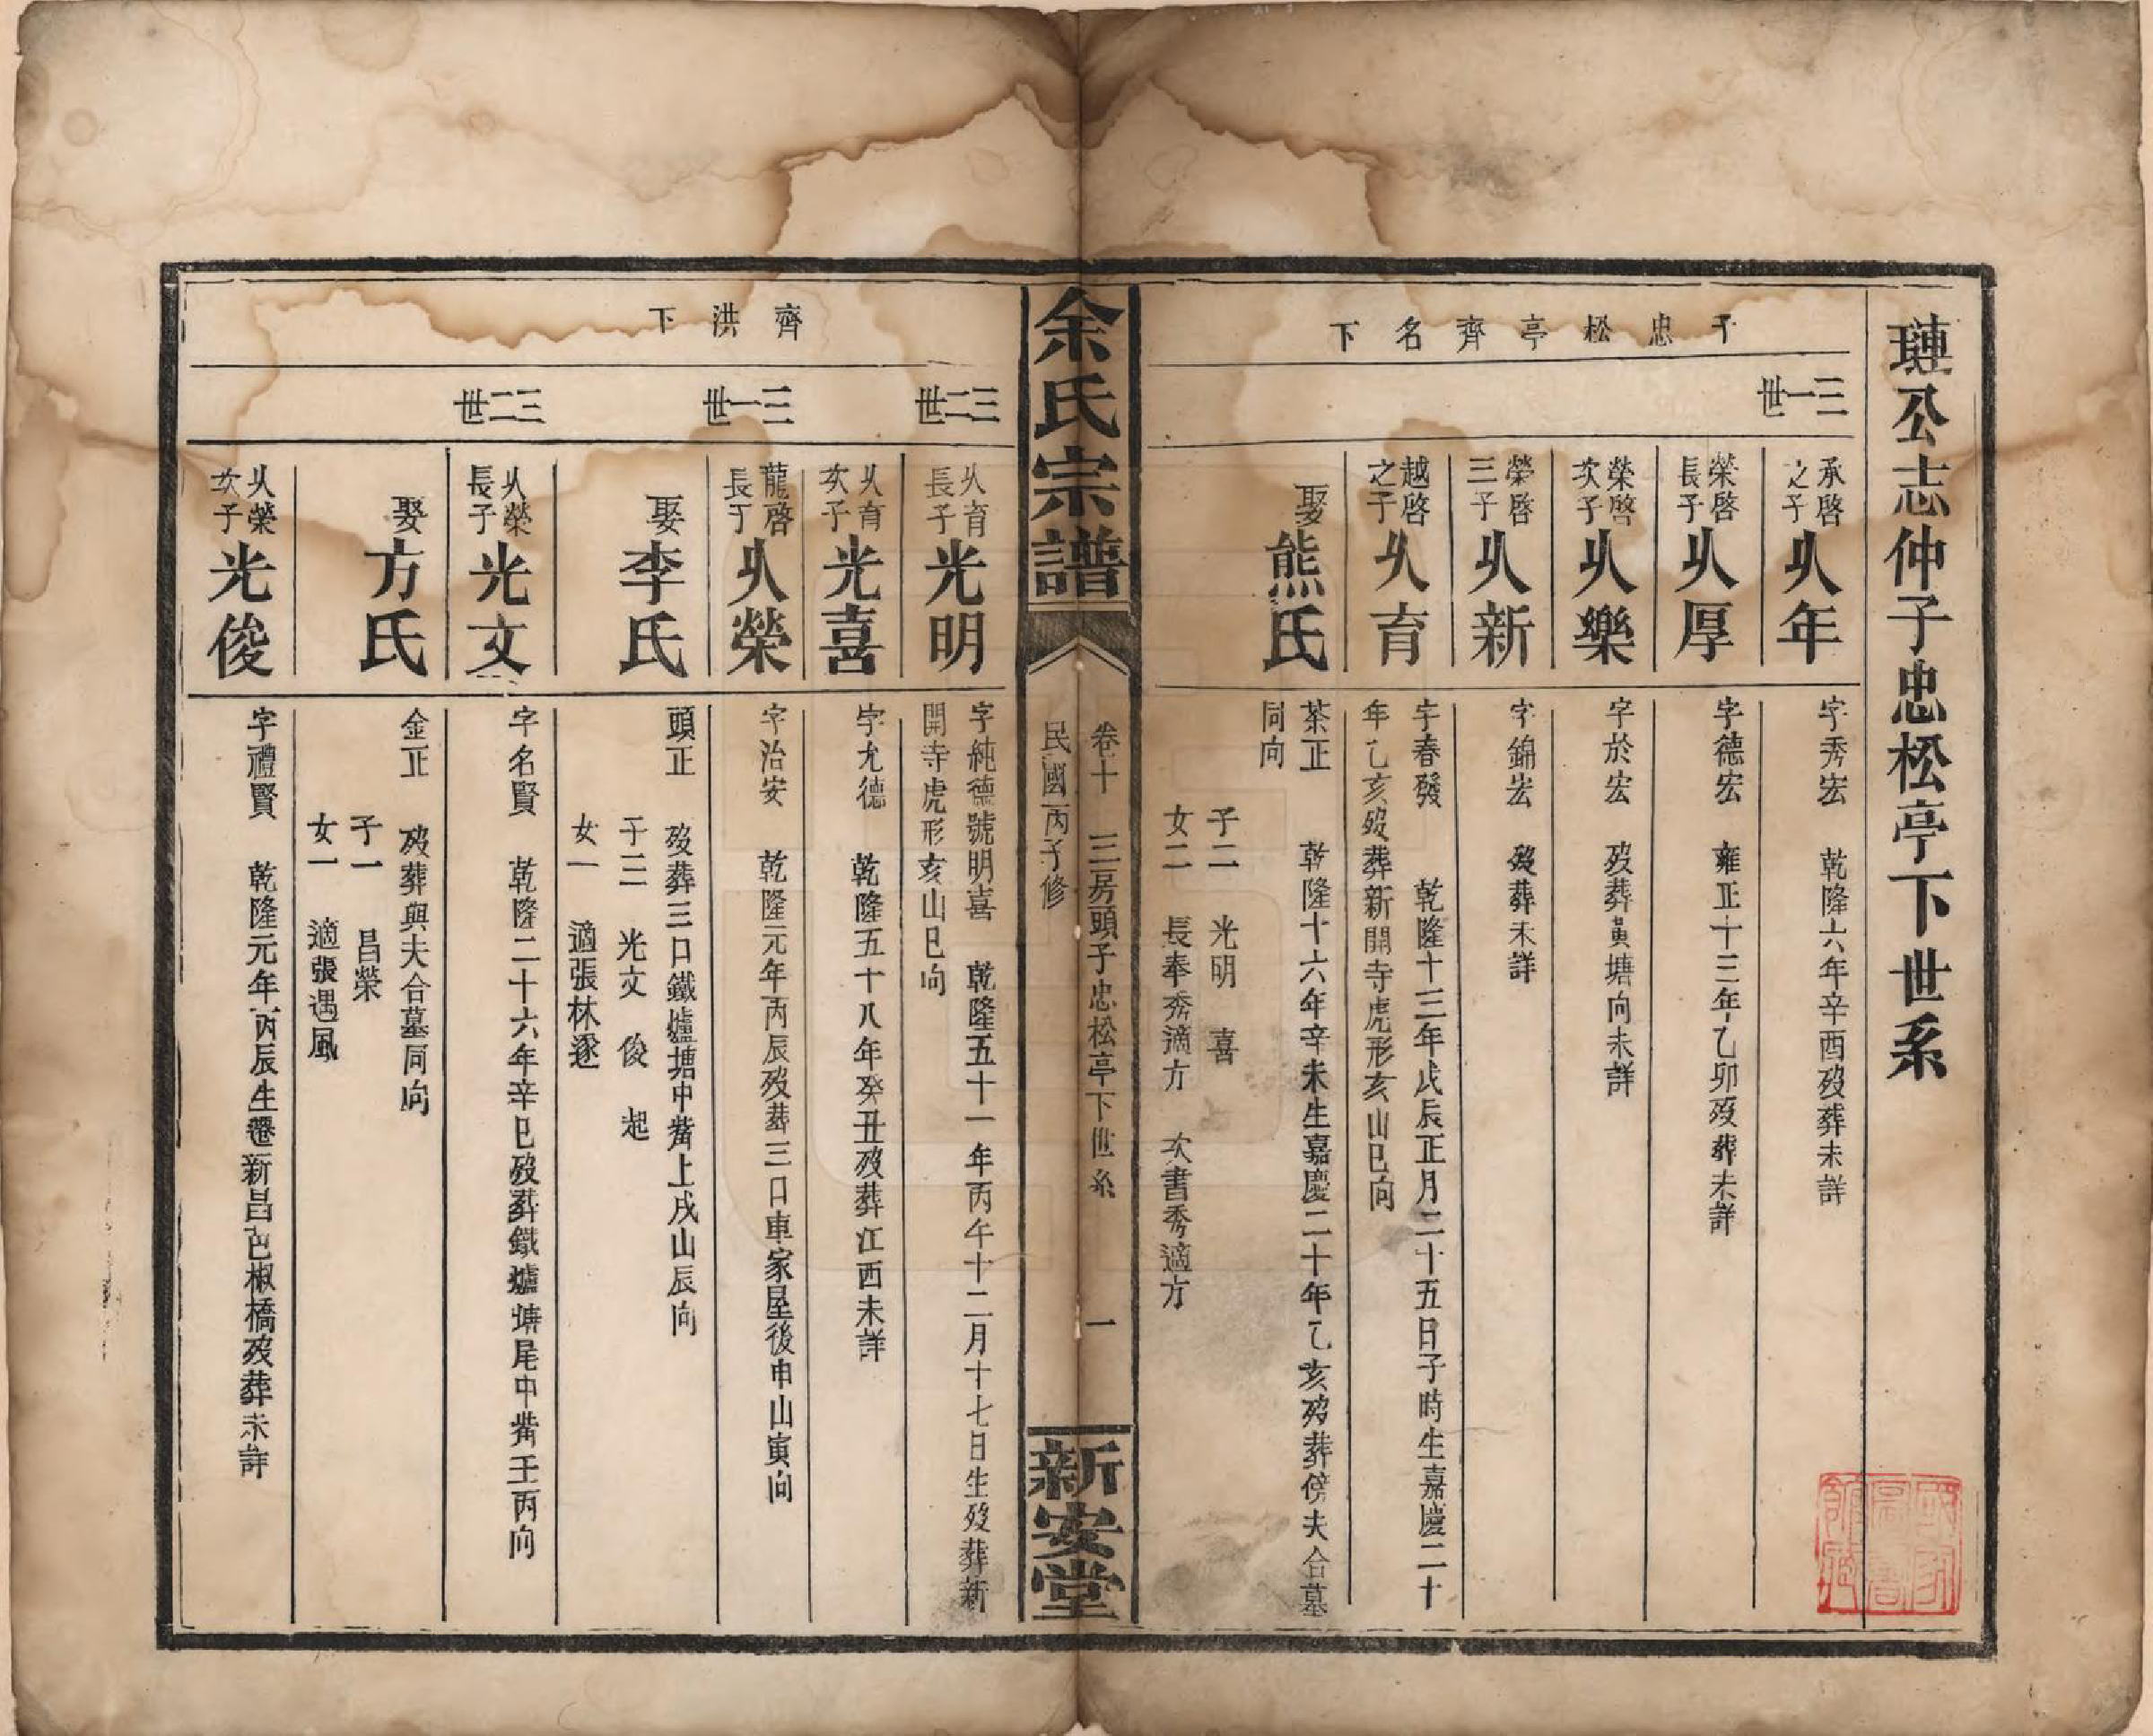 璉公志仲子忠松亭下世系
子忠松亭齊名下
三一世
承啓之子 㕥年 字秀宏 乾隆六年辛酉歿葬未詳
榮啓長子 㕥厚 字德宏 雍正十三年乙卯歿葬未詳
榮啓次子 㕥樂 字於宏 歿葬黃塘向未詳
榮啓三子 㕥新 字錦宏 歿葬未詳
越啓之子 㕥育 字春發 乾隆十三年戊辰正月二十五日子時生嘉慶二十
年乙亥歿葬新開寺虎形亥山巳向
娶熊氏 茶正 乾隆十六年辛未生嘉慶二十年乙亥歿葬傍夫合墓
同向
子二 光明 喜
女二 長奉秀適方 次書秀適方
余氏宗譜
卷十 三房頭子忠松亭下世系 一
民國丙子修
新安堂
齊洪下
三二世
㕥育長子 光明 字純德號明喜 乾隆五十一年丙午十二月十七日生歿葬新
開寺虎形亥山巳向
㕥育次子 光喜 字尤德 乾隆五十八年癸丑歿葬江西未詳
三一世
龍啓長子 㕥榮 字治安 乾隆元年丙辰歿葬三口車家屋後申山寅向
娶李氏 頭正 歿葬三口鐵爐塘中嘴上戌山辰向
子三 光文 俊 起
女一 適張林逐
三二世
㕥榮長子 光文 字名賢 乾隆二十六年辛巳歿葬鐵爐塘尾中嘴壬丙向
娶方氏 金正 歿葬與夫合墓同向
子一 昌榮
女一 適張遇風
㕥榮次子 光俊 字禮賢 乾隆元年丙辰生遷新昌邑椒橋歿葬未詳